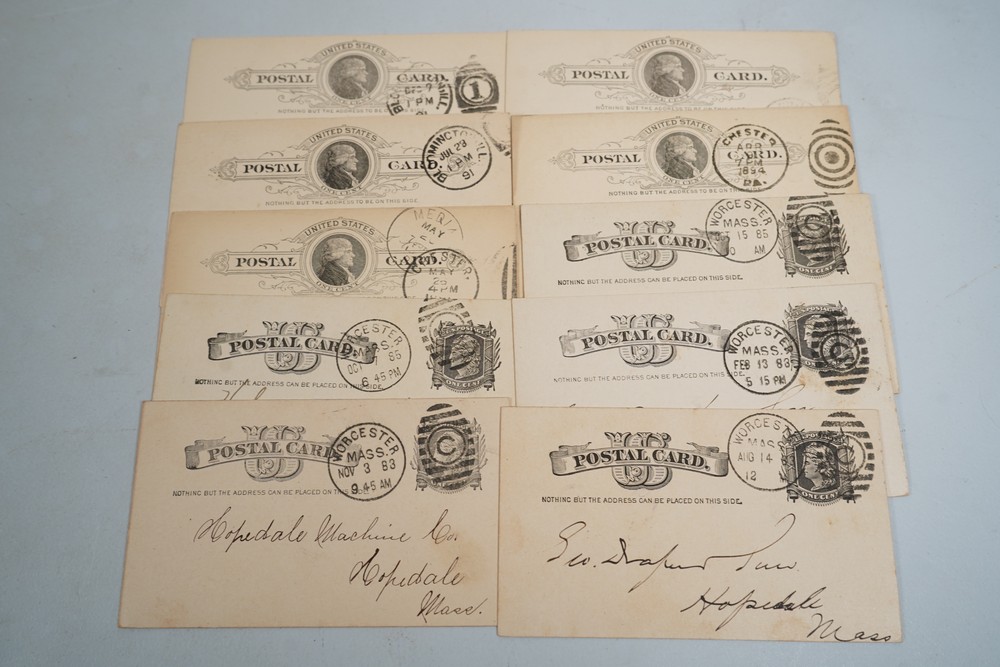 UNITED STATES
POSTAL CARD.
ONE CENT
NOTHING BUT THE ADDRESS TO BE
1 PM
1
UNITED STATES
POSTAL CARD.
NOTHING BUT THE ADDRESS TO BE ON THIS SIDE
UNITED STATES
POSTAL CARD.
ONE CENT
NOTHING BUT THE ADDRESS TO BE ON THIS SIDE.
BLOOMINGTON ILL.
JUL 29
1 PM
91
UNITED STATES
POSTAL CARD.
ONE CENT
NOTHING BUT THE ADDRESS TO BE ON THIS SIDE.
CHESTER
APR
7 PM
1894
PA.
UNITED STATES
POSTAL CARD.
ONE CENT
MAY
CHESTER.
MAY
PM
US
POSTAL CARD.
NOTHING BUT THE ADDRESS CAN BE PLACED ON THIS SIDE.
WORCESTER
MASS.
15 85
AM
ONE CENT
US
POSTAL CARD.
NOTHING BUT THE ADDRESS CAN BE PLACED ON THIS SIDE.
WORCESTER
MASS.
OCT 85
6 45 PM
ONE CENT
US
POSTAL CARD.
NOTHING BUT THE ADDRESS CAN BE PLACED ON THIS SIDE.
WORCESTER
MASS.
FEB 13 83
5 15 PM
C
US
POSTAL CARD.
NOTHING BUT THE ADDRESS CAN BE PLACED ON THIS SIDE.
WORCESTER
MASS.
NOV 3 83
9 45 AM
C
Hopedale Machine Co.
Hopedale
Mass.
US
POSTAL CARD.
NOTHING BUT THE ADDRESS CAN BE PLACED ON THIS SIDE.
WORCESTER
MASS
AUG 14
12
ONE CENT
Geo. Draper Sons.
Hopedale
Mass